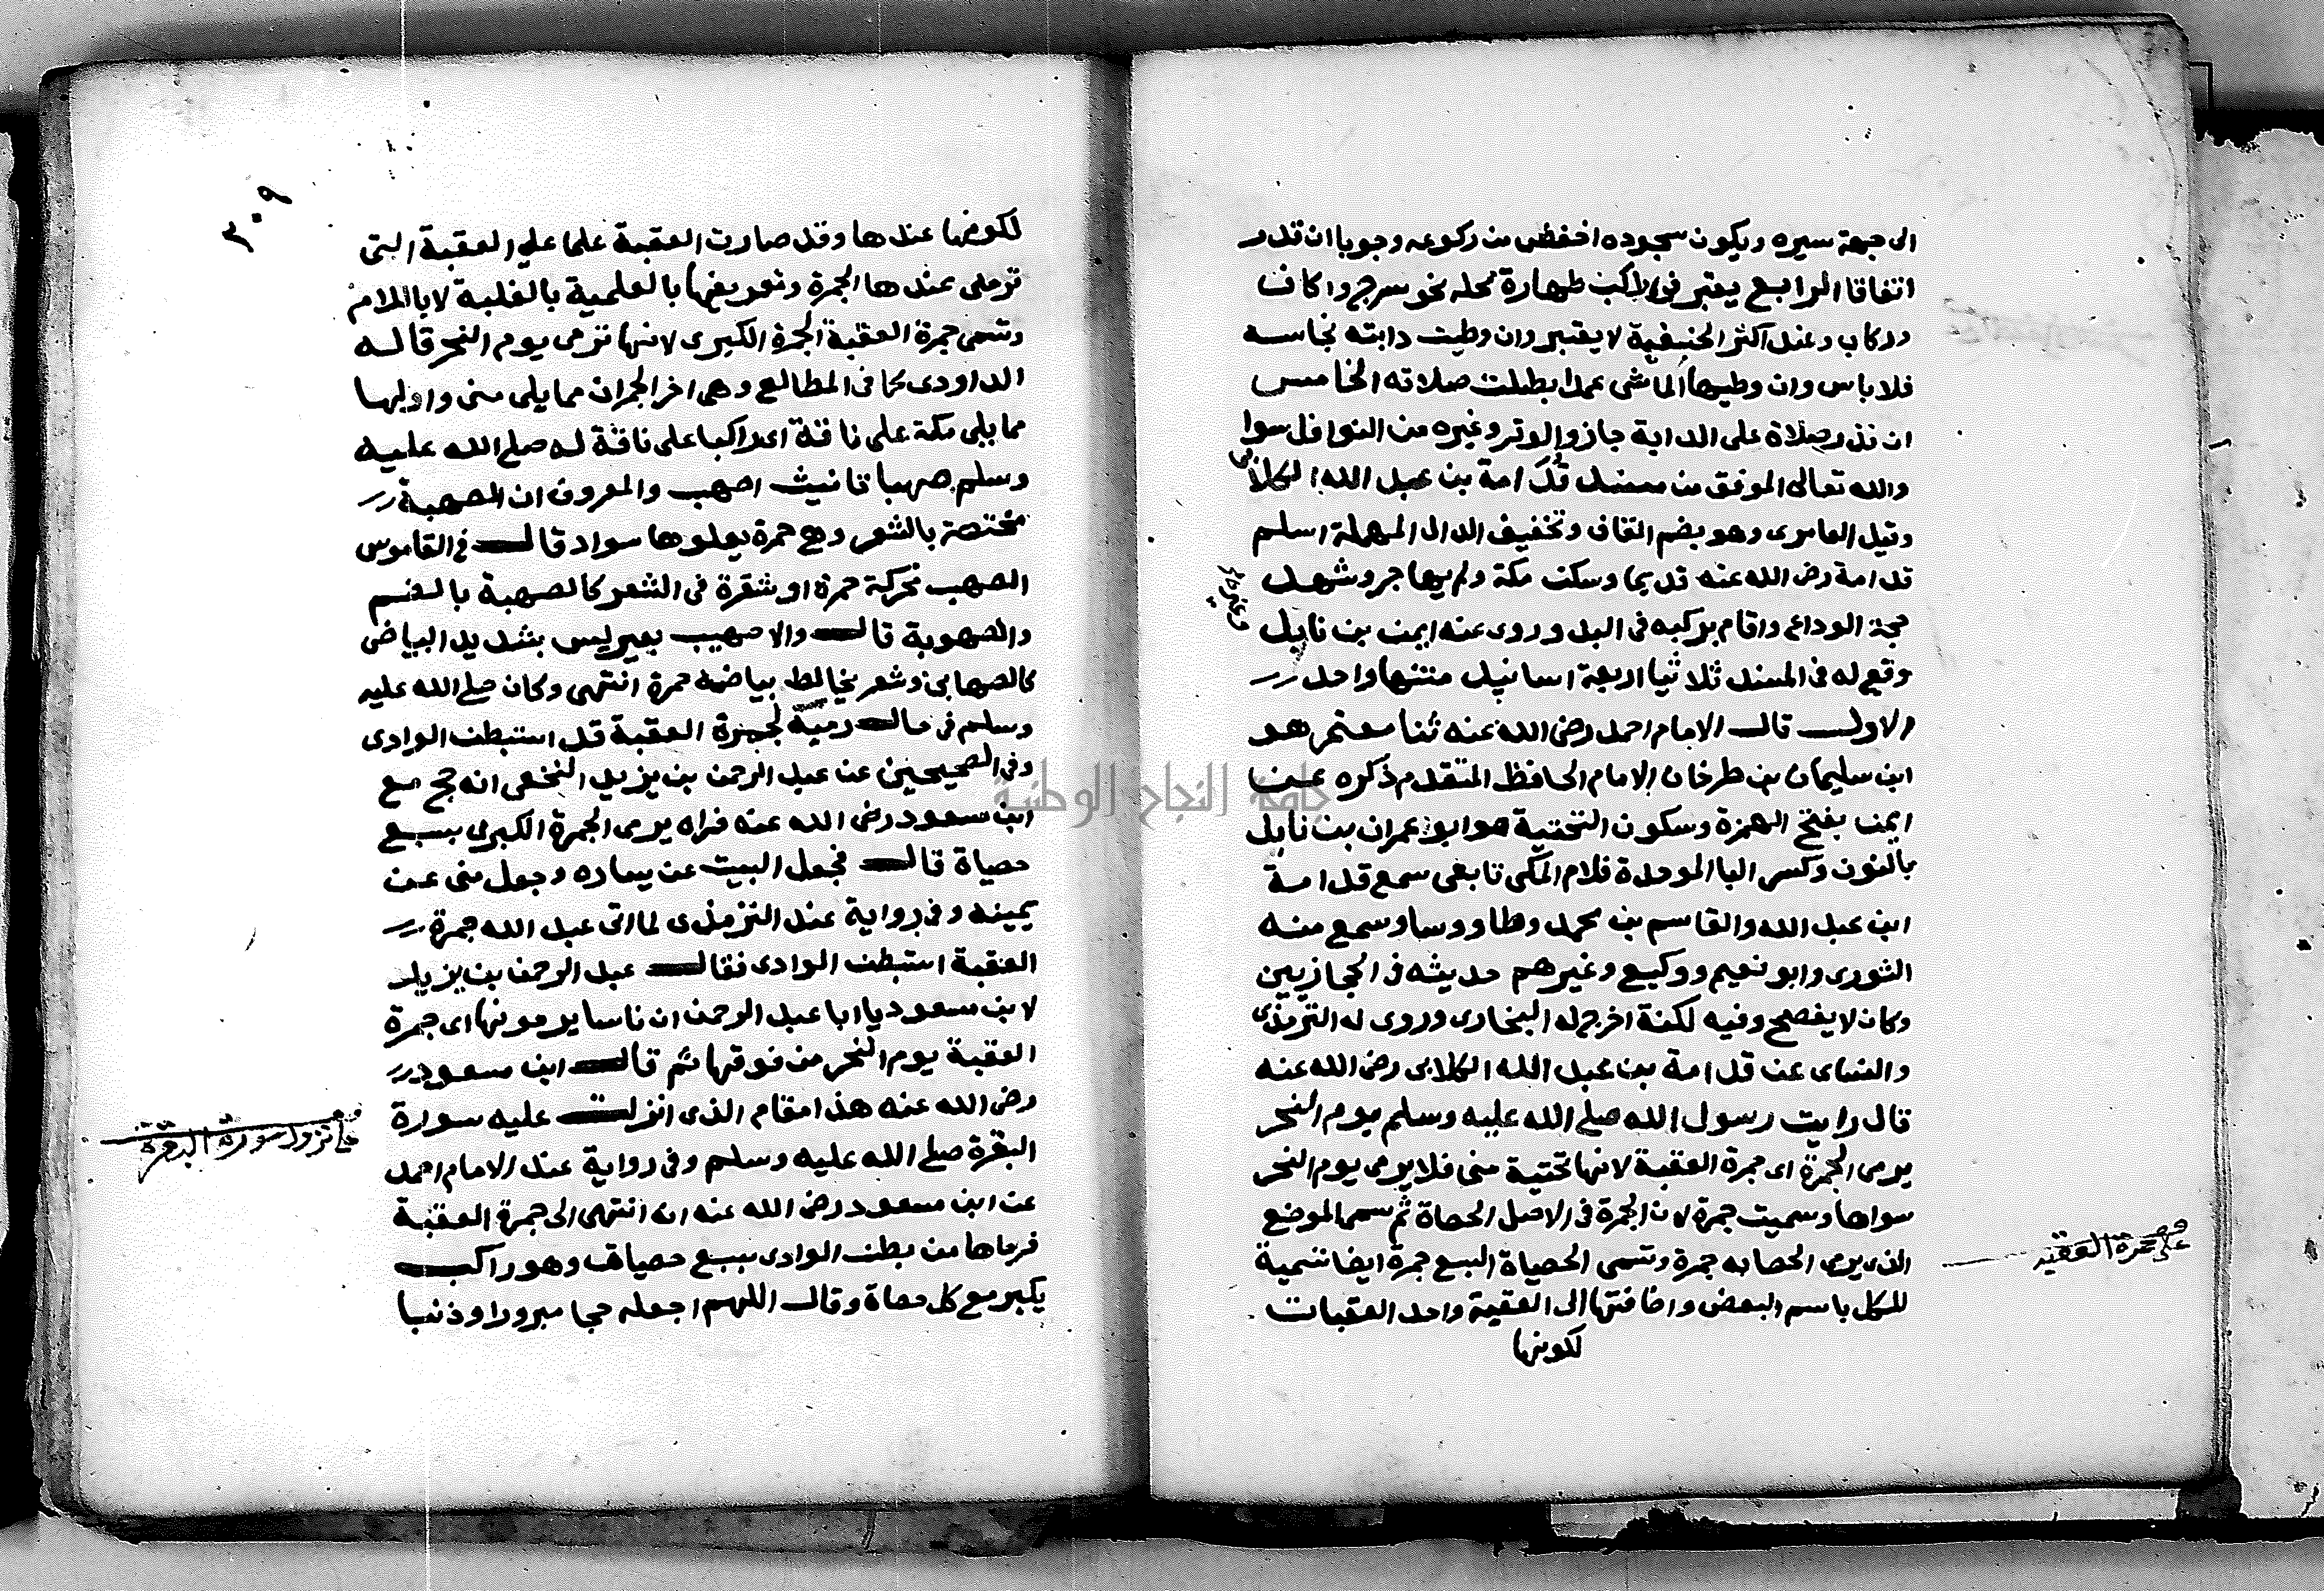 الى جهة سيره ويكون سجوده اخفض من ركوعه وجوبا ان قدر
اتفاقا الرابع يعتبر في الراكب طهارة محله نحو سرج واكاف
وركاب وعند اكثر الحنفية لا يعتبر وان وطيت دابته نجاسه
فلا باس وان وطيها الماشي عمدا بطلت صلاته الخامس
ان نذر صلاة على الداية جاز والوتر وغيره من النوافل سوا
والله تعالى الموفق من مسند قدامة بن عبد الله الكلابي
وقيل العامرى وهو بضم القاف وتخفيف الدال المهملة اسلم
قدامة رضى الله عنه قديما وسكن مكة ولم يهاجر وشهد
حجة الوداع واقام بركبه فى البدو وروى عنه ايمن بن نابل
وغيره
وقع له فى المسند ثلاثيا اربعة اسانيد متنها واحد
الاول قال الامام احمد رضى الله عنه ثنا معتمر هو
ابن سليمان بن طرخان الامام الحافظ المتقدم ذكره عن
ايمن بفتح الهمزة وسكون التحتية هو ابو عمران بن نابل
بالنون وكسر البا الموحدة فلام المكى تابعى سمع قدامة
ابن عبد الله والقاسم بن محمد وطاووسا وسمع منه
الثورى وابو نعيم ووكيع وغيرهم حديثه فى الحجازيين
وكان لا يفصح وفيه لكنة اخرج له البخارى وروى له الترمذى
والنساى عن قدامة بن عبد الله الكلابى رضى الله عنه
قال رايت رسول الله صلى الله عليه وسلم يوم النحر
يرمى الجمرة اى جمرة العقبة لانها تحتية منى فلا يرمى يوم النحر
سواها وسميت جمرة لان الجمرة فى الاصل الحصاة ثم سمى الموضع
الذى يرمى الحصا به جمرة وتسمى الحصياة السبع جمرة ايضا تسمية
على جمرة العقبة
للكل باسم البعض واضافتها الى العقبة واحد العقبات
لكونها
٣٠٩
لكونها عندها وقد صارت العقبة علما على العقبة التى
ترمى عندها الجمرة وتعريفها بالعلمية بالغلبة لا باللام
وتسمى جمرة العقبة الجمرة الكبرى لانها ترمى يوم النحر قاله
الداودى كما فى المطالع وهى اخر الجمران مما يلى منى واولها
مما يلى مكة على ناقة اى راكبا على ناقة له صلى الله عليه
وسلم صهبا تانيث اصهب والمعروف ان الصهبة
مختصة بالشعر وهى حمرة يعلوها سواد قال فى القاموس
الصهب محركة حمرة او شقرة فى الشعر كالصهبة بالضم
والصهوبة قال والاصهيب بعير ليس بشديد البياض
كالصهابى وشعر يخالط بياضه حمرة انتهى وكان صلى الله عليه
وسلم فى حال رمية لجمرة العقبة قد استبطن الوادى
وفى الصحيحين عن عبد الرحمن بن يزيد النخعى انه حج مع
ابن مسعود رضى الله عنه فراه يرمى الجمرة الكبرى بسبع
حصياة قال فجعل البيت عن يساره وجعل منى عن
يمينه وفى رواية عند الترمذى لما اتى عبد الله جمرة
العقبة استبطن الوادى فقال عبد الرحمن بن يزيد
لابن مسعود يا ابا عبد الرحمن ان ناسا يرمونها اى جمرة
العقبة يوم النحر من فوقها ثم قال ابن مسعود
رضى الله عنه هذا مقام الذى انزلت عليه سورة
نزول سورة البقرة
البقرة صلى الله عليه وسلم وفى رواية عند الامام احمد
عن ابن مسعود رضى الله عنه انه انتهى الى جمرة العقبة
فرماها من بطن الوادى بسبع حصياة وهو راكب
يكبر مع كل حصاة وقال اللهم اجعله حجا مبرورا وذنبا
جامعة النجاح الوطنية